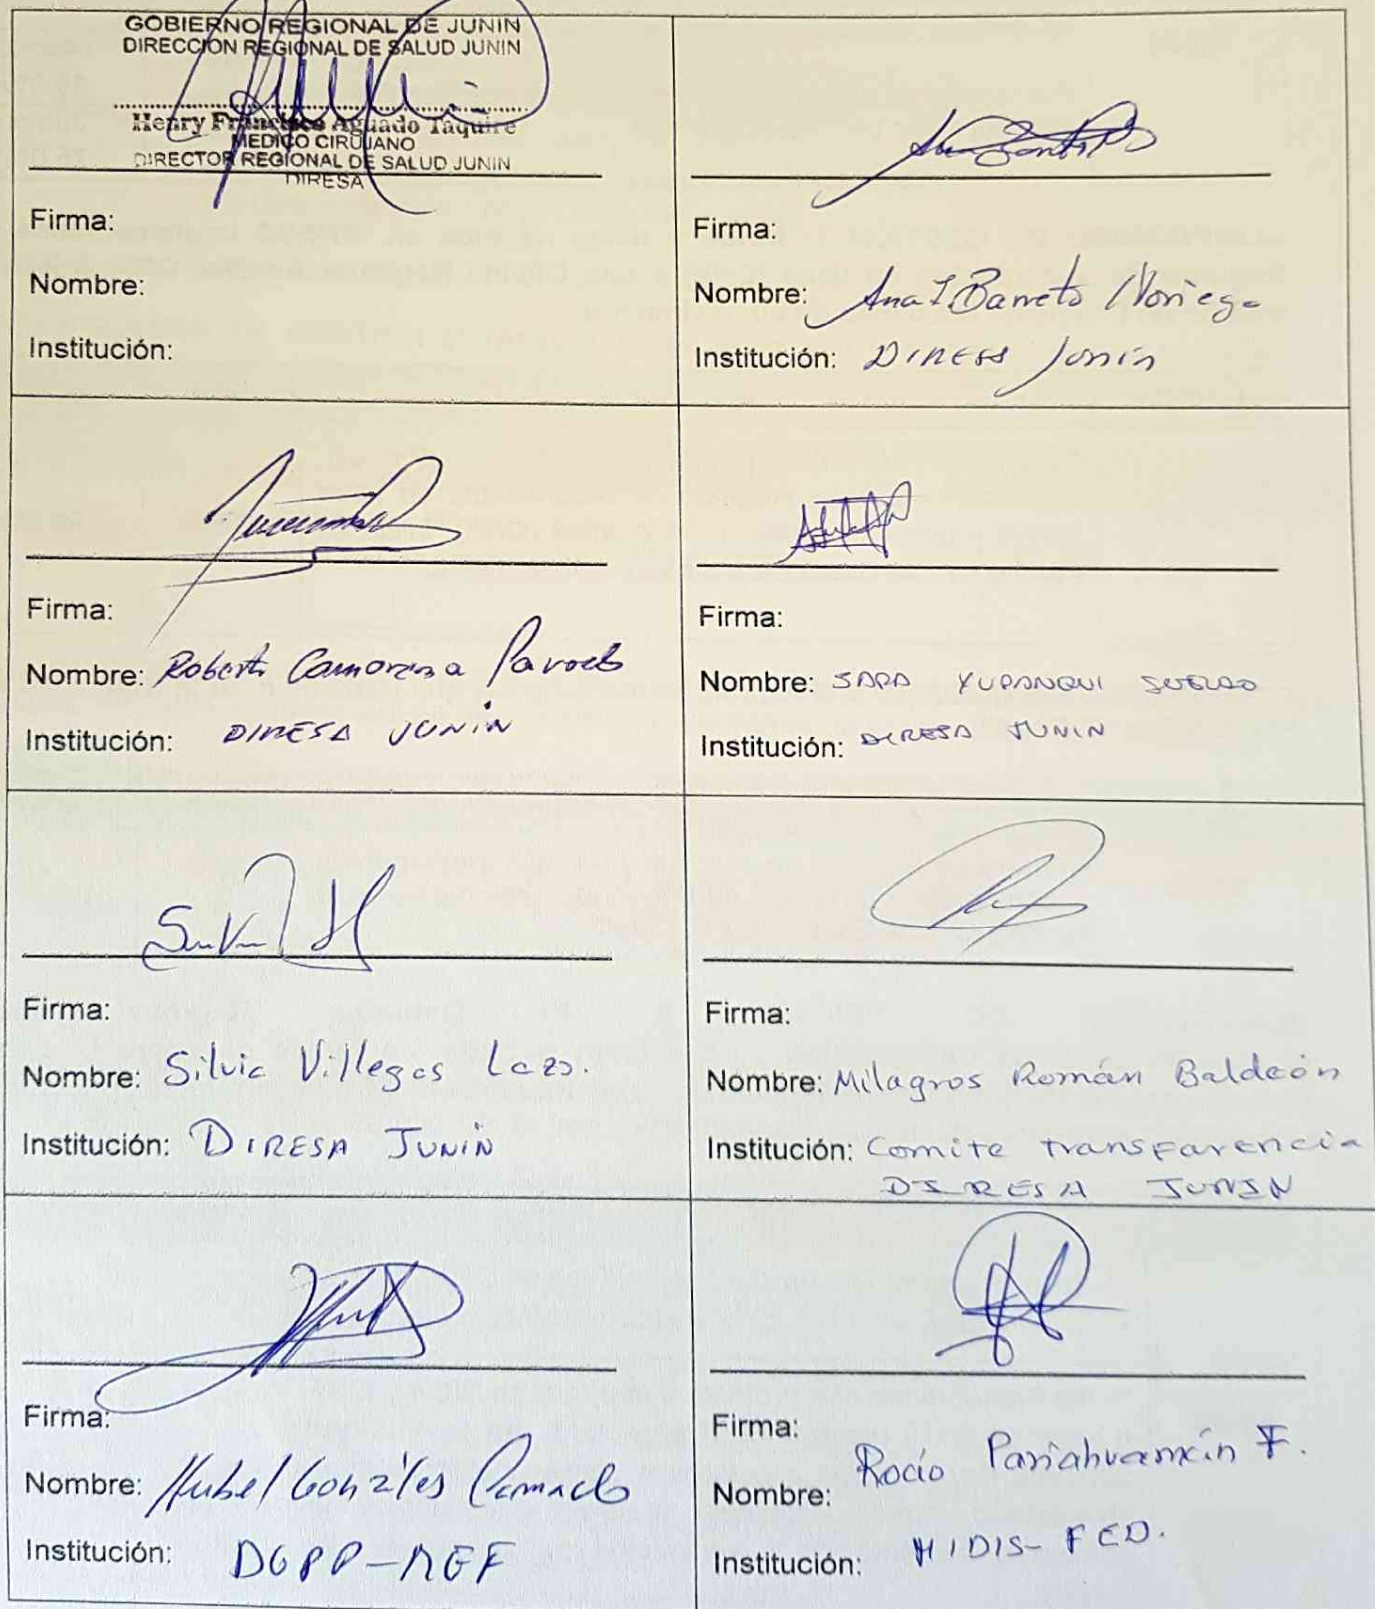 GOBIERNO REGIONAL DE JUNIN
DIRECCIÓN REGIONAL DE SALUD JUNIN
Henry Francisco Aguado Taquire
MEDICO CIRUJANO
DIRECTOR REGIONAL DE SALUD JUNIN
DIRESA
Firma:
Nombre:
Institución:
Firma:
Nombre: Ana I Barreto Noriega
Institución: DIRESA Junín
Firma:
Nombre: Roberto Camarena
Institución: DIRESA JUNIN
Firma:
Nombre: SARA YUPANQUI
Institución: DIRESA JUNIN
Firma:
Nombre: Silvia Villegas Lazo.
Institución: DIRESA JUNIN
Firma:
Nombre: Milagros Román Baldeón
Institución: Comite transparencia
DIRESA JUNIN
Firma:
Nombre: Gonzáles Camacho
Institución: DGPP-MEF
Firma:
Nombre: Rocío Pariahuamán F.
Institución: MIDIS-FED.